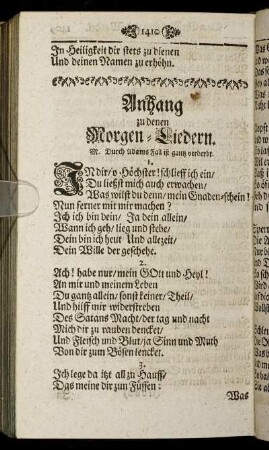 1410
In Heiligkeit dir stets zu dienen
Und deinen Namen zu erhöhn.
Anhang
zu denen
Morgen-Liedern.
M. Durch Adams Fall ist gantz verderbt.
1.
IN dir/ o Höchster! schlieff ich ein/
Du ließst mich auch erwachen/
Was wilst du denn/ mein Gnaden-schein!
Nun ferner mit mir machen?
Ich ich bin dein/ Ja dein allein/
Wann ich geh/ lieg und stehe/
Dein bin ich heut Und allezeit/
Dein Wille der geschehe.
2.
Ach! habe nur/ mein GOtt und Heyl!
An mir und meinem Leben
Du gantz allein/ sonst keiner/ Theil/
Und hilff mir widerstreben
Des Satans Macht/ der tag und nacht
Mich dir zu rauben dencket/
Und Fleisch und Blut/ ja Sinn und Muth
Von dir zum Bösen lencket.
3.
Ich lege da itzt all zu Hauff/
Das meine dir zun Füssen:
Was